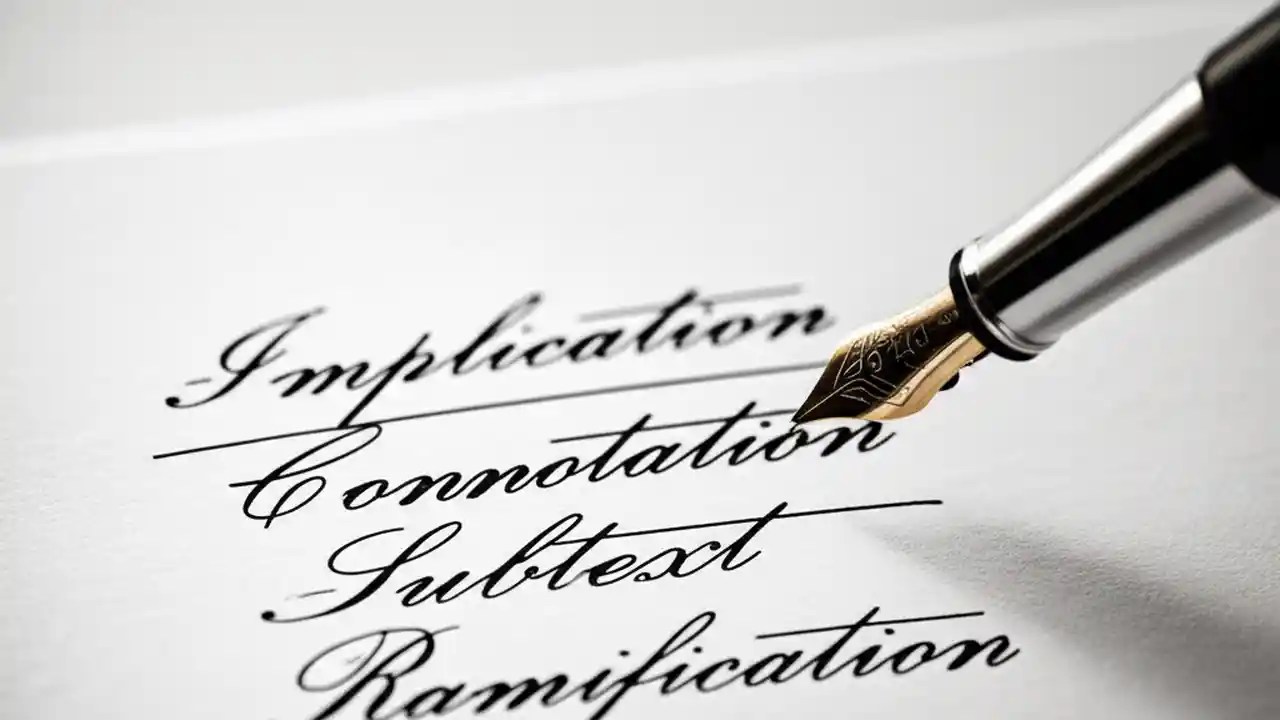 Implication
Connotation
Subtext
Ramification